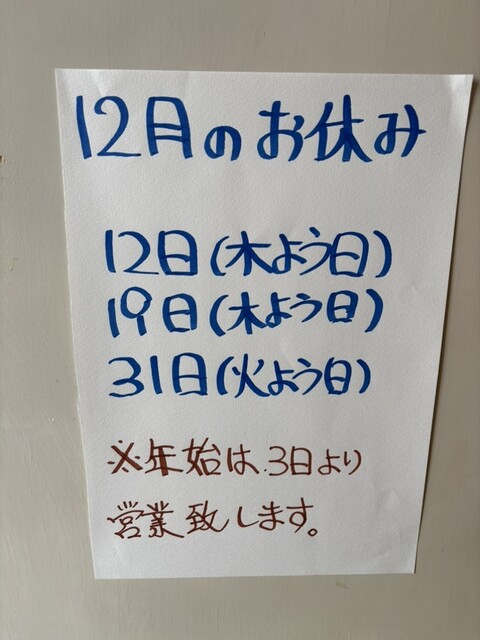 12月のお休み
12日(木よう日)
19日(木よう日)
31日(火よう日)
※年始は.3日より
営業致します。